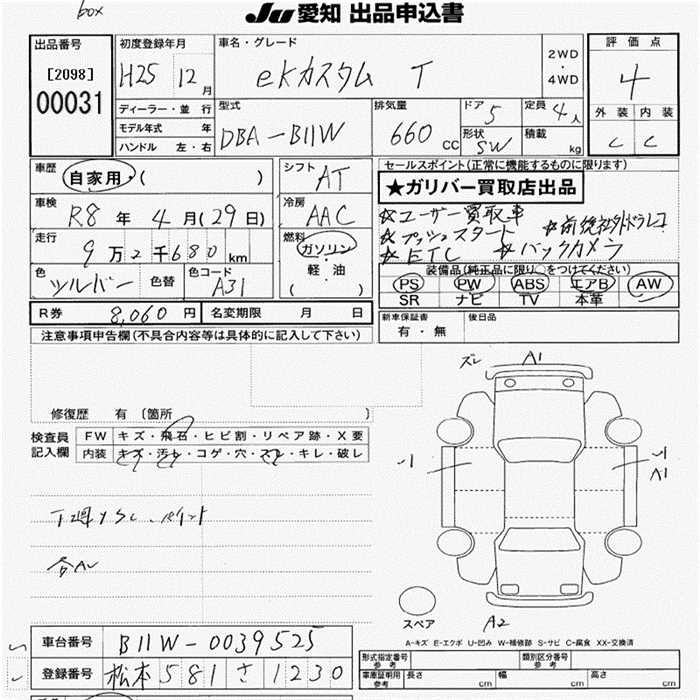 box
JU愛知 出品申込書
出品番号 初度登録年月 車名・グレード 評価点
[2098] H25 12月 eKカスタム T 2WD・4WD 4
00031 ディーラー・並行 型式 排気量 ドア 5 定員 4人 外装 内装
モデル年式 年 DBA-B11W 660cc 形状 SW 積載 kg C C
ハンドル 左・右
車歴 自家用・( ) シフト AT セールスポイント(正常に機能するものに限ります)
★ガリバー買取店出品
車検 R8年 4月(29日) 冷房 AAC ☆ユーザー買取車 ☆前後社外ドラレコ
走行 9万2千680km 燃料 ガソリン・軽油( ) ☆プッシュスタート
☆ETC ☆バックカメラ
色 シルバー 色替 色コード A31 装備品(純正品に限り○をつけてください)
PS PW ABS エアB AW
SR ナビ TV 本革
R券 8,060円 名変期限 月 日 新車保証書 有・無 後日品
注意事項申告欄(不具合内容等は具体的に記入して下さい)
ズレ A1
修復歴 有〔箇所 〕
検査員記入欄 FW キズ・飛石・ヒビ割・リペア跡・X要
内装 キズ・汚れ・コゲ・穴・スレ・キレ・破レ
A1
スペア A2
A-キズ E-エクボ U-凹み W-補修跡 S-サビ C-腐食 XX-交換済
車台番号 B11W-0039525
登録番号 松本 581 さ 1230
形式指定番号 参考 類別区分番号 参考
車庫証明用 参考 長さ cm 幅 cm 高さ cm